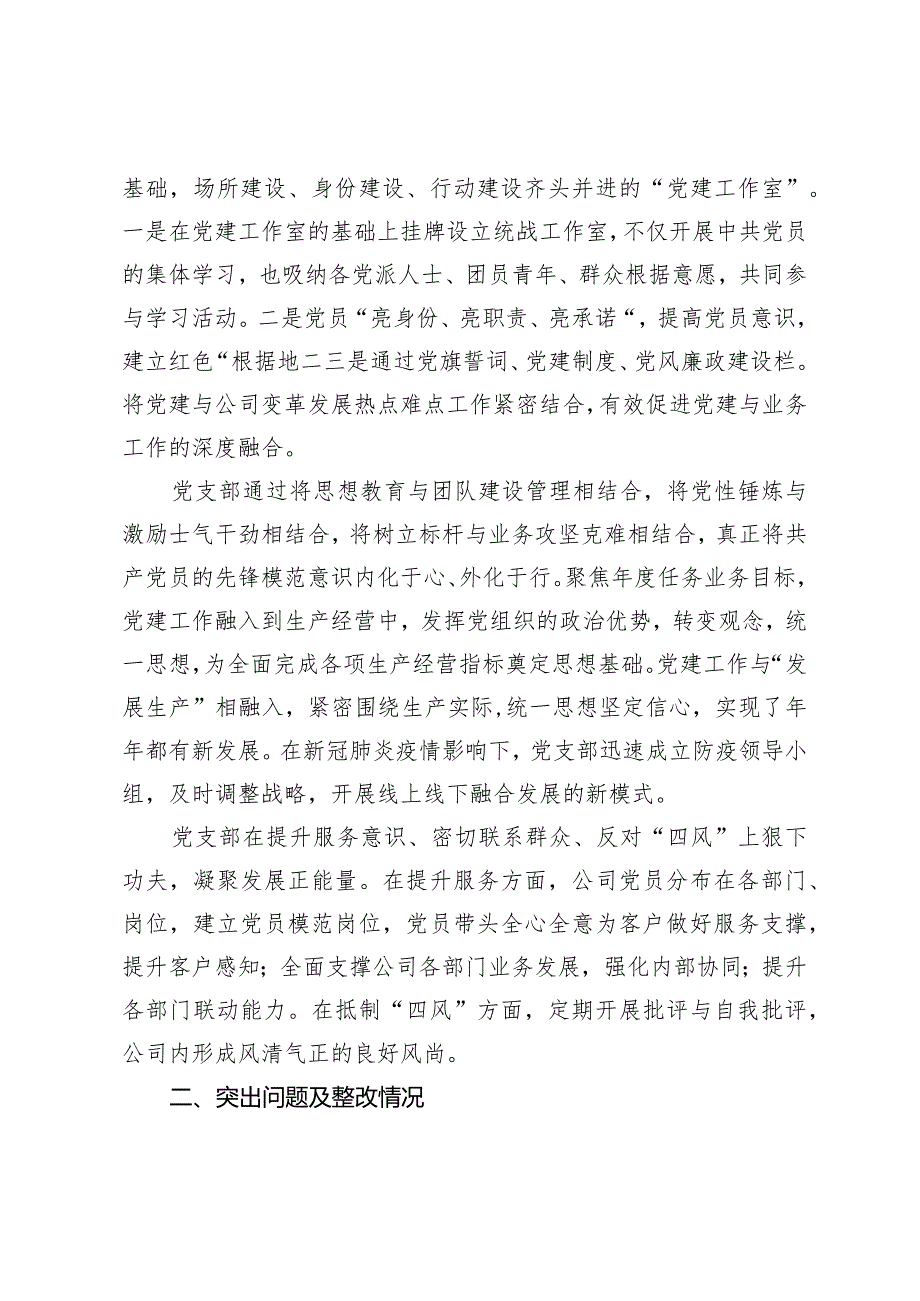 基础，场所建设、身份建设、行动建设齐头并进的“党建工作室”。
一是在党建工作室的基础上挂牌设立统战工作室,不仅开展中共党员
的集体学习，也吸纳各党派人士、团员青年、群众根据意愿，共同参
与学习活动。二是党员“亮身份、亮职责、亮承诺“，提高党员意识，
建立红色“根据地二三是通过党旗誓词、党建制度、党风廉政建设栏。
将党建与公司变革发展热点难点工作紧密结合,有效促进党建与业务
工作的深度融合。
党支部通过将思想教育与团队建设管理相结合，将党性锤炼与
激励士气干劲相结合，将树立标杆与业务攻坚克难相结合，真正将共
产党员的先锋模范意识内化于心、外化于行。聚焦年度任务业务目标，
党建工作融入到生产经营中，发挥党组织的政治优势，转变观念，统
一思想,为全面完成各项生产经营指标奠定思想基础。党建工作与“发
展生产”相融入，紧密围绕生产实际,统一思想坚定信心，实现了年
年都有新发展。在新冠肺炎疫情影响下，党支部迅速成立防疫领导小
组，及时调整战略，开展线上线下融合发展的新模式。
党支部在提升服务意识、密切联系群众、反对“四风”上狠下
功夫，凝聚发展正能量。在提升服务方面，公司党员分布在各部门、
岗位，建立党员模范岗位，党员带头全心全意为客户做好服务支撑，
提升客户感知；全面支撑公司各部门业务发展，强化内部协同；提升
各部门联动能力。在抵制“四风”方面，定期开展批评与自我批评，
公司内形成风清气正的良好风尚。
二、突出问题及整改情况